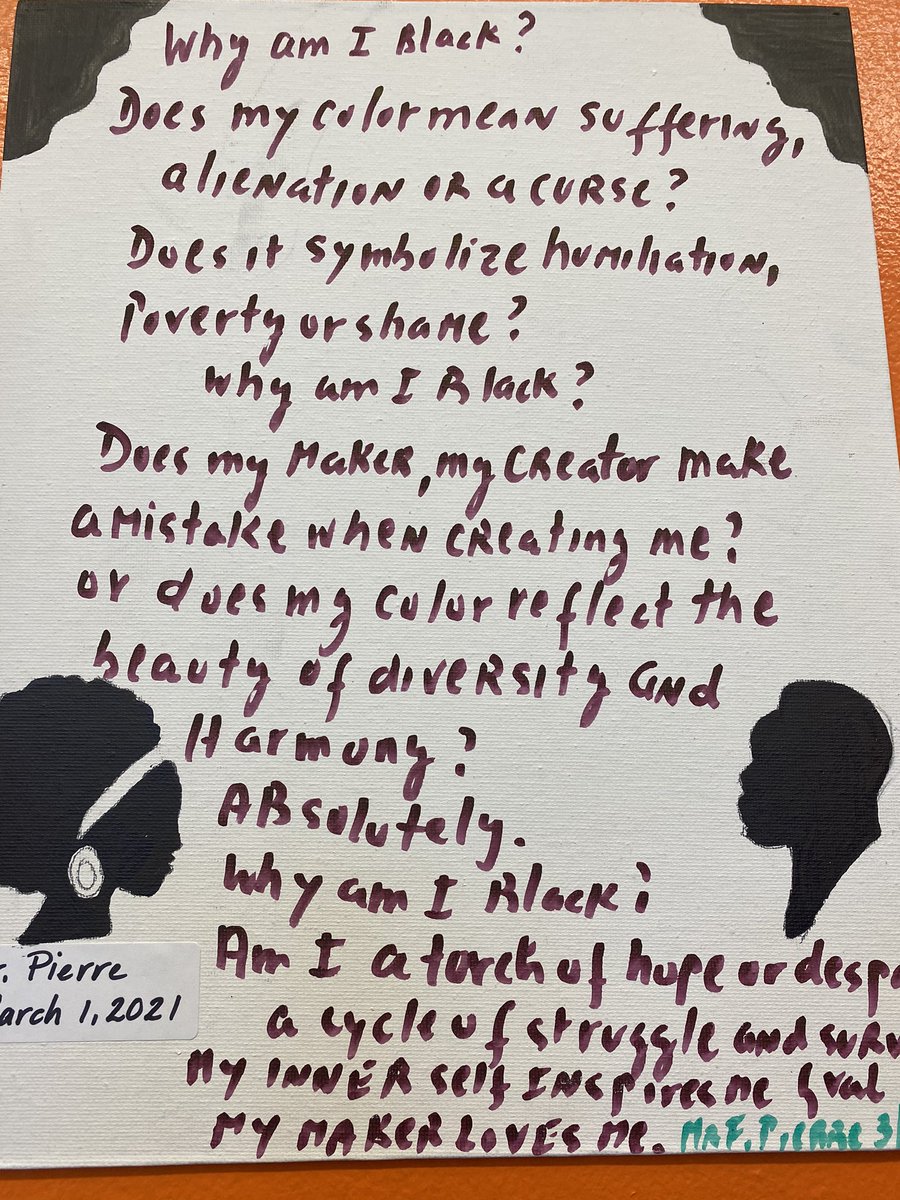 Why am I Black?
Does my color mean suffering,
alienation or a curse?
Does it symbolize humiliation,
Poverty or shame?
Why am I Black?
Does my Maker, my Creator make
a mistake when creating me?
or does my color reflect the
beauty of diversity and
Harmony?
Absolutely.
Why am I Black?
Am I a torch of hope or
a cycle of struggle and
My inner self inspires me
My Maker loves me.
Pierre
March 1, 2021